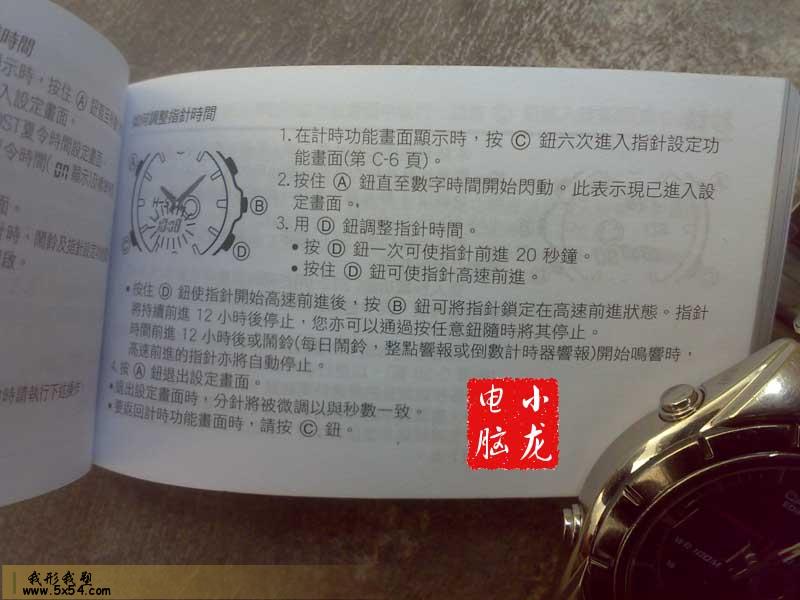 時間
示時，按住 Ⓐ 鈕直至
入設定畫面。
DST夏令時間設定畫面
令時間(ON顯示)及
面。
計時、鬧鈴及指針設定功能
啟。
時請執行下述操作
如何調整指針時間
1. 在計時功能畫面顯示時，按 Ⓒ 鈕六次進入指針設定功
能畫面(第 C-6 頁)。
2. 按住 Ⓐ 鈕直至數字時間開始閃動。此表示現已進入設
定畫面。
3. 用 Ⓓ 鈕調整指針時間。
• 按 Ⓓ 鈕一次可使指針前進 20 秒鐘。
• 按住 Ⓓ 鈕可使指針高速前進。
Ⓐ
Ⓑ
Ⓒ
Ⓓ
• 按住 Ⓓ 鈕使指針開始高速前進後，按 Ⓑ 鈕可將指針鎖定在高速前進狀態。指針
將持續前進 12 小時後停止，您亦可以通過按任意鈕隨時將其停止。
時間前進 12 小時後或鬧鈴(每日鬧鈴，整點響報或倒數計時器響報)開始鳴響時，
高速前進的指針亦將自動停止。
4. 按 Ⓐ 鈕退出設定畫面。
• 退出設定畫面時，分針將被微調以與秒數一致。
• 要返回計時功能畫面時，請按 Ⓒ 鈕。
小龙
电脑
WR 100M
我形我塑
www.5x54.com